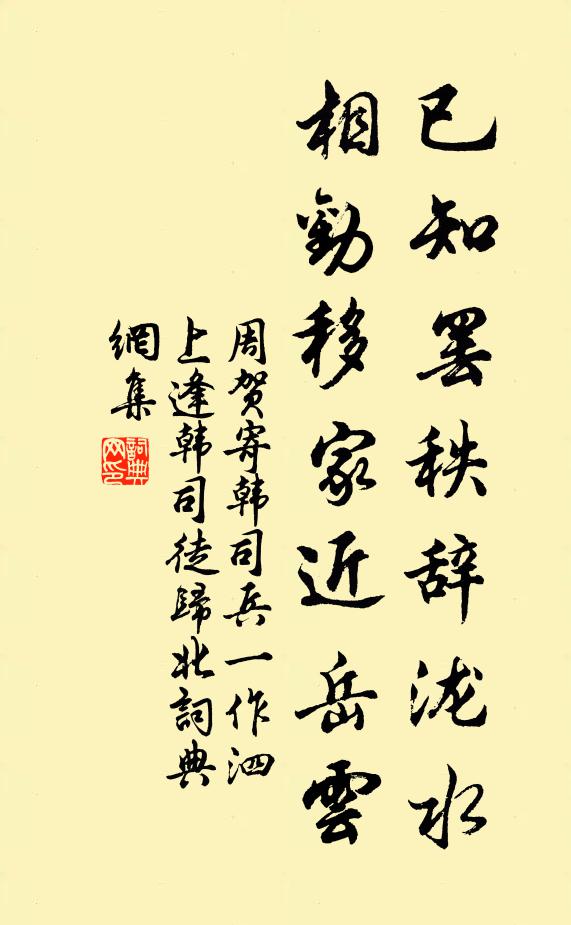 已知罢秩辞泷水
相勸移家近岳雲
周贺寄韩司兵一作泗
上逢韩司徒歸北詞典
網集
詞典网印